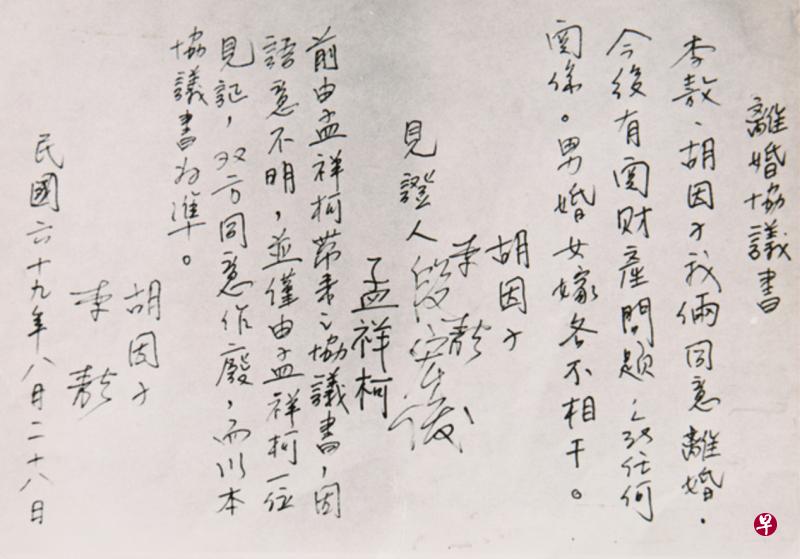 離婚協議書
李敖、胡因子我倆同意離婚。
今後有関財產問題任何
関係。男婚女嫁各不相干。
胡因子
李敖
見證人 段宏俊
孟祥柯
前由孟祥柯帶來之協議書，因
語意不明，並僅由孟祥柯一位
見証，双方同意作廢，而以本
協議書为準。
胡因子
李敖
民國六十九年八月二十八日
早